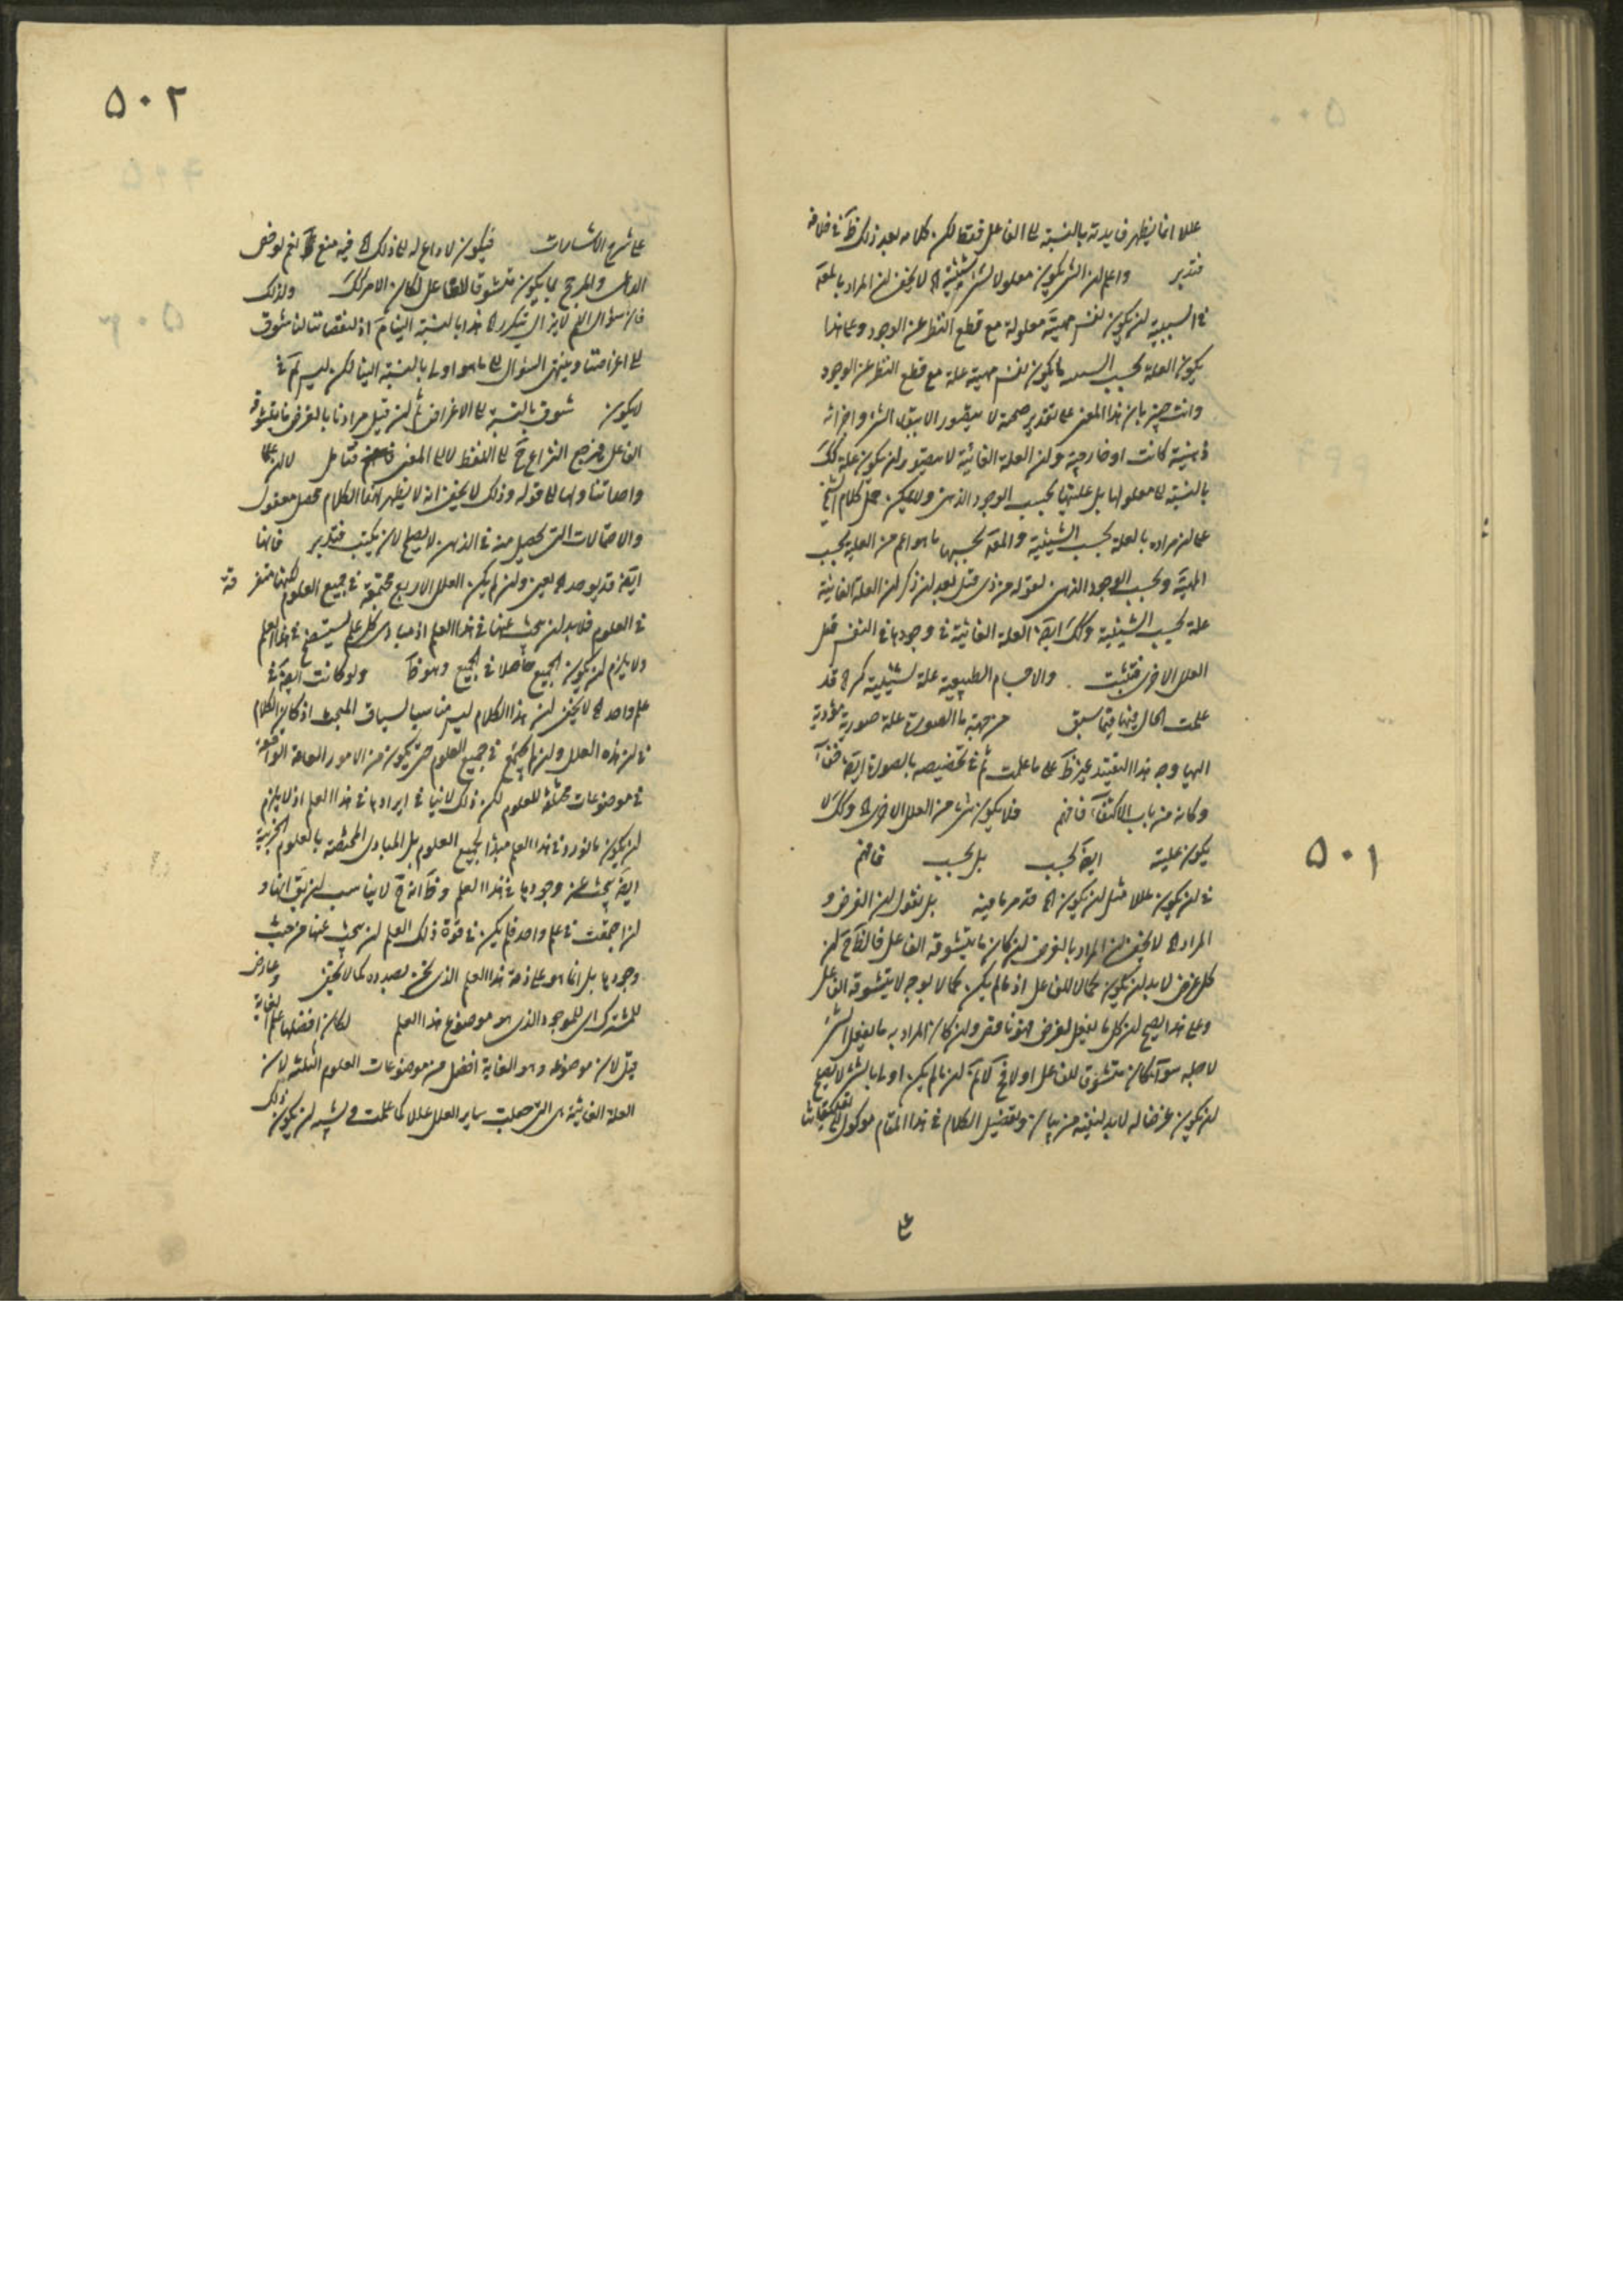 عللا انما يظهر فايدته بالنسبة الى الفاعل فقط لكن كلامه بعد ذلك ظَ فى خلافه
فتدبر واعلم ان الشئ يكون معلولا لشئ الشيئية اه لا يخفى ان المراد بالعلة
فى السببية ان يكون نفس مهيته معلولة مع قطع النظر عن الوجود وعلى هذا
يكون العلة بحسب ما يكون نفس مهيته علة مع قطع النظر عن الوجود
وانت خبير بان هذا المعنى على تقدير صحته لا يتصور الا بين الشئ واجزائه
ذهنية كانت او خارجية وان العلة الغائية لا يتصور ان يكون علة كك
بالنسبة الى معلولها بل عليتها بحسب الوجود الذهنى ولا يمكن حمل كلام الشيخ
على ان مراده بالعلة بحسب الشيئية والمعلَ بحسبها ما هو اعم من العلية بحسب
المهيَة وبحسب الوجود الذهنى لقوله من ذى قبل بعد ان ذكر ان العلة الغائية
علة بحسب الشيئية وكك ايضَ العلة الغائية فى وجودها فى النفس قبل
العلل الاخرى فتثبت والاجسام الطبيعية علة لشيئية كثر اه قد
علمت الحال فيها فيما سبق من جهة ما الصورة علة صورية مؤدية
اليها وجه هذا التقييد غير ظَ على ما علمت ثم فى تخصيصه بالصورة ايضَ خفآ
وكانه من باب الاكتفآ فافهم فلا يكون شئ من العلل الاخرى اه وكك لا
يكون علية ايضَ بحسب بل بحسب فافهم
٥٠١
فى ان يكون عللا مثل ان يكون اه قد مر ما فيه بل نقول ان الغرض و
المراد اه لا يخفى ان المراد بالغرض ان كان ما يتشوقه الفاعل فالظَ حَ ان
كل غرض لا بد ان يكون كمالا للفاعل اذ ما لم يكن كمالا بوجه لا يتشوقه الفاعل
وعلى هذا يصح ان كل ما يفعل لغرض فهو ناقص وان كان المراد به ما يفعل الشئ
لاجله سوآ كان متشوق للفاعل او لا فحَ لا نمَ ان ما لم يكن اولى بالشئ لا يصح
ان يكون غرضا له لا بد لنفيه من بيان وتفصيل الكلام فى هذا المقام موكول الى تعليقاتنا
على
٥٠٢
على شرح الاشارات فيكون لا داع له الى ذلك اه فيه منع ظَ نعم لو خص
الداعى والمرجح بما يكون متشوقا للفاعل لكان الامر كك ولذلك
فان سؤال اللم لا يزال يتكرر اه هذا بالنسبة الينا تمَ اذ لنقصاننا لنا شوق
الى اغراضنا وينتهى السؤال الى ما هو اولى بالنسبة الينا لكن ليس تمَ فى
لا يكون شوق بالنسبة الى الاغراض ثم ان قيل مرادنا بالغرض ما يتشوقه
الفاعل فيرجع النزاع حَ الى اللفظ لا الى المعنى فتأمل
واصابتنا ولها الى قوله وذلك لا يخفى انه لا يظهر لهذا الكلام محصل معقول
والاحتمالات التى يحصل منه فى الذهن لا يصلح لان يكتب فتدبر فانها
ايضَ قد يوجد اه يعنى وان لم يكن العلل الاربع مجتمعة فى جميع العلوم لكنها متفرقة
فى العلوم فلا بد ان يبحث عنها فى هذا العلم اذ مبادى كل علم يستصح فى هذا العلم
ولا يلزم ان يكون الجميع حاصلا فى الجميع وهو ظَ ولو كانت ايضَ فى
علم واحد اه لا يخفى ان هذا الكلام ليس مناسبا لسياق المبحث اذ كان الكلام
فى ان هذه العلل وان لم يجتمع فى جميع العلوم حتى يكون من الامور العامة الواقعة
فى موضوعات مختلفة للعلوم لكن ذلك لا ينافى ايرادها فى هذا العلم اذ لا يلزم
ان يكون ما نورد فى هذا العلم مبدأ لجميع العلوم بل المبادى المختصة بالعلوم الجزئية
ايضَ يبحث عن وجودها فى هذا العلم وظَ انه حَ لا يناسب ان يقَ انها و
ان اجتمعت فى علم واحد فلم يكن فى قوة ذلك العلم ان يبحث عنها من حيث
وجودها بل انما هو على ذمة هذا العلم الذى نحن بصدده كما لا يخفى وعارض
للمشترك اى للموجود الذى هو موضوع هذا العلم لكان افضلها علم الغاية
قيل لان موضوعه وهو الغاية افضل من موضوعات العلوم الثلثة لان
العلة الغائية هى التى جعلت ساير العلل عللا كما علمت ويشبه ان يكون ذلك